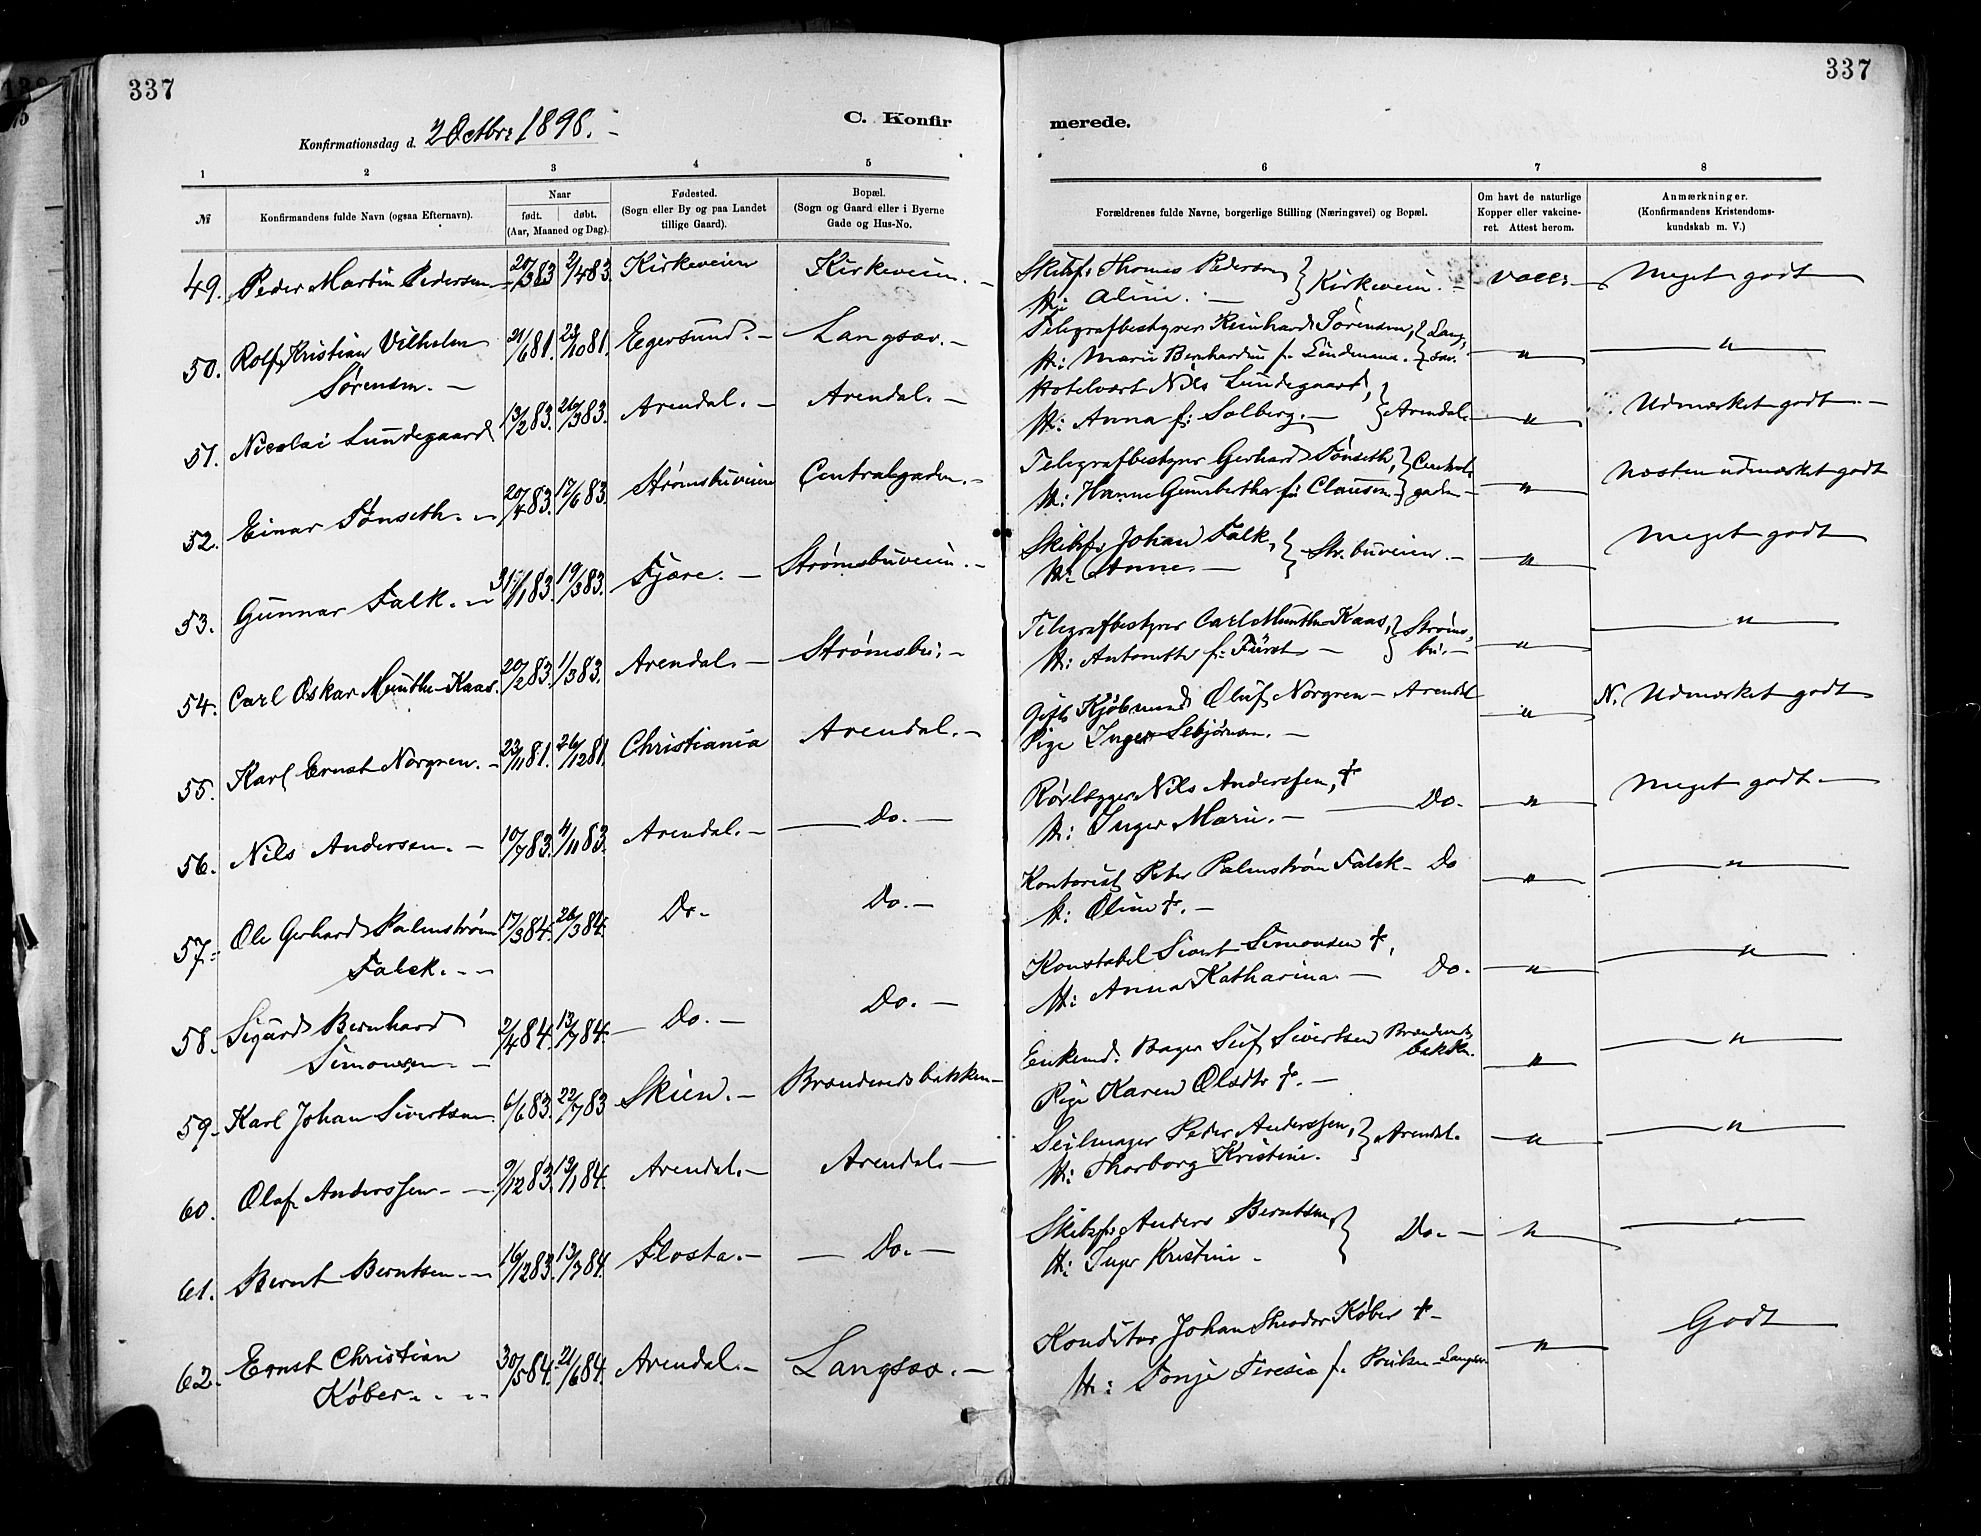 337
337
Konfirmationsdag d. 2 Octbr 1898. -
C. Konfir
merede.
1 2 3 4 5 6 7 8
№
Konfirmandens fulde Navn (ogsaa Efternavn).
Naar
født. døbt.
(Aar, Maaned og Dag).
Fødested.
(Sogn eller By og paa Landet
tillige Gaard).
Bopæl.
(Sogn og Gaard eller i Byerne
Gade og Hus-No.
Forældrenes fulde Navne, borgerlige Stilling (Næringsvei) og Bopæl.
Om havt de naturlige
Kopper eller vakcine-
ret. Attest herom.
Anmærkninger.
(Konfirmandens Kristendoms-
kundskab m. V.)
49. Peder Martin Pedersen 20/3 83 2/4 83. Kirkeveien Kirkeveien. - Skibsf: Thomas Pedersen } Kirkeveien. - vacc: Meget godt
H: Aline. -
50. Rolf Kristian Vilhelm 21/6 81. 23/10 81. Egersund. - Langsæv. - Telegrafbestyrer Reinhard Sørensen, } Lang,
Sørensen. - H: Marie Bernhardine f. Lindemann. } sæv. " "
51. Nicolai Lundegaard 13/2 83. 26/3 83. Arendal. - Arendal. - Hotelvært Nils Lundegaard,
H: Anna f: Solberg. - } Arendal. " Udmærket godt. -
52. Einar Tønseth. - 20/4 83. 17/6 83. Strømsbuveien Centralgaden. - Telegrafbestyrer Gerhard Tønseth, } Central-
H: Hanne Gunbertha f: Clausen. } gaden - " Næsten udmærket godt
53. Gunnar Falk. - 31/1 83. 19/3 83. Fjære. - Strømsbuveien. - Skibsf. Johan Falk, } Str. buveien. - " Meget godt
H: Anne. -
54. Carl Oskar Munthe-Kaas. 20/2 83. 1/3 83. Arendal. - Strømsbu. - Telegrafbestyrer Carl Munthe-Kaas, } Strøms,
H: Antonette f: Fürst - } bu. - " "
55. Karl Ernst Norgren. - 23/11 81. 26/12 81. Christiania Arendal. - Gift Kjøbmand Oluf Norgren - Arendal " N. Udmærket godt
Pige Inger Sebjørnsen. -
56. Nils Andersen. - 10/7 83. 4/11 83. Arendal. - Do. - Rørlægger Nils Anderssen, † Do. " Meget godt. -
H: Inger Marie. -
57. Ole Gerhard Palmstrøm 17/3 84. 26/3 84. Do. - Do. - Kontorist Peter Palmstrøm Falck - Do " "
Falck. - - H: Oline †. -
58. Sigurd Bernhard 2/4 84. 13/7 84. Do. - Do. - Konstabel Sivert Simonsen †,
Simonsen. - H: Anna Katharina. - Do. " "
59. Karl Johan Sivertsen 6/6 83. 22/7 83 Skien. - Brændevinsbakken - Enkemd. Bager Leif Sivertsen Brændevins
bakken. " "
Pige Karen Olsdtr †. -
60. Olaf Anderssen. - 9/12 83. 13/1 84. Arendal. - Arendal. - Seilmager Peder Anderssen, } Arendal. " "
H: Thorborg Kristine.
61. Bernt Berntsen. - 16/12 83. 13/7 84. Flosta. - Do. - Skibsf: Anders Berntsen, } Do. - " "
H: Inger Kristine -
62. Ernst Christian 30/5 84. 21/6 84. Arendal. - Langsæv. - Konditor Johan Theodor Køber † - " Godt
Køber. - - H: Tonje Teresia f.